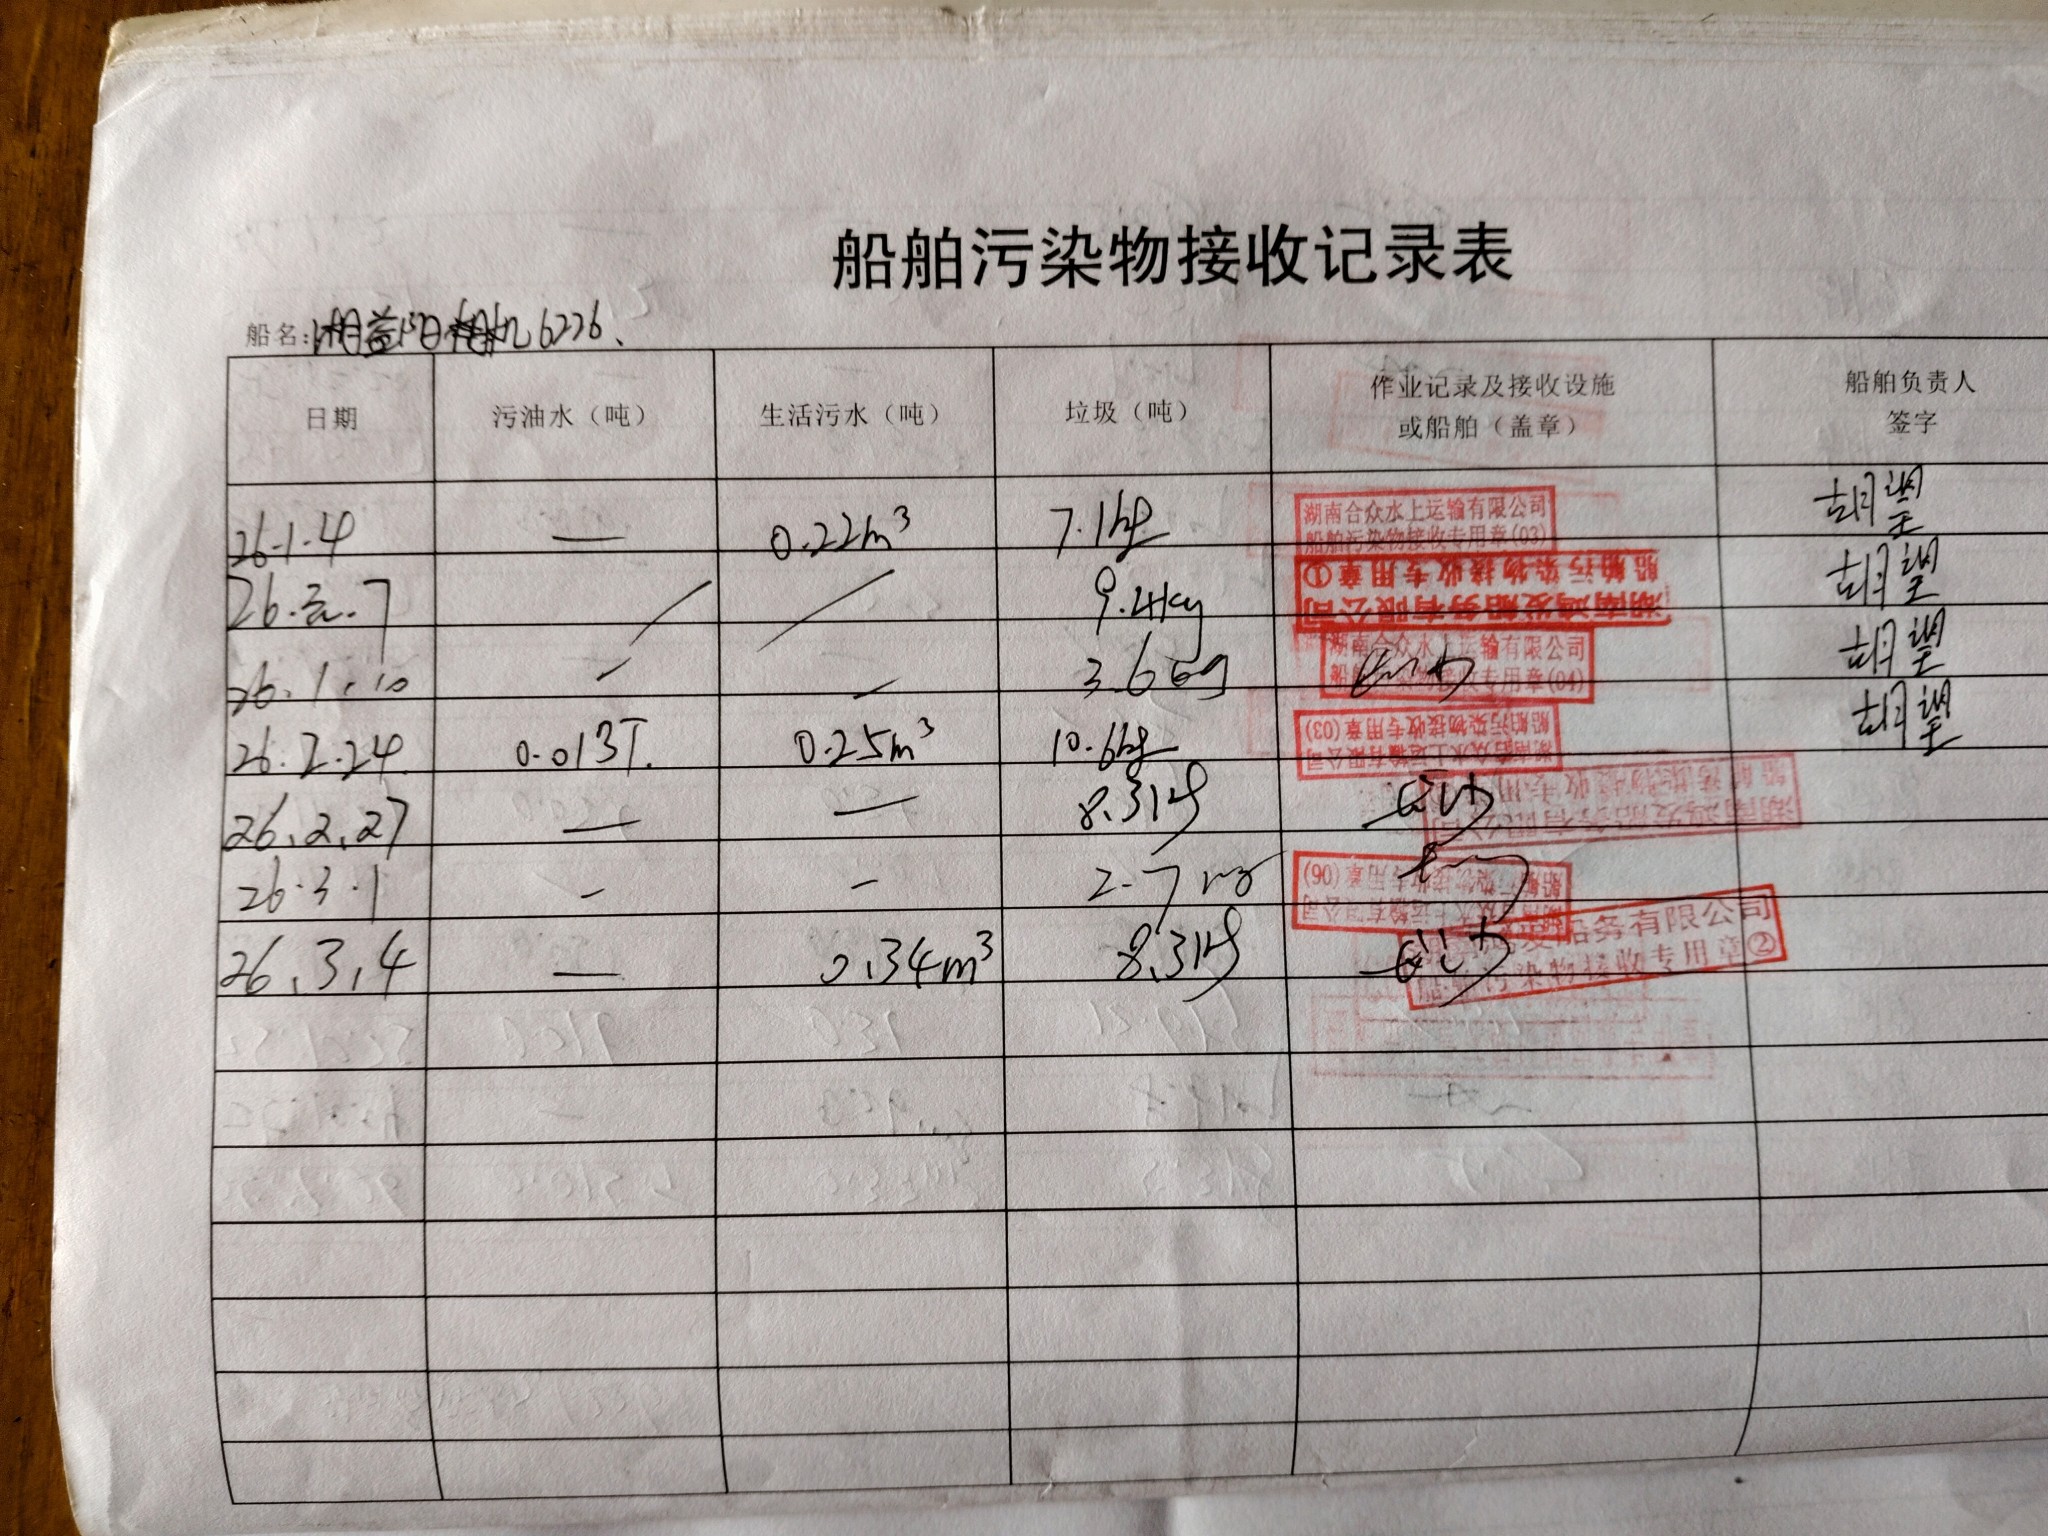 船舶污染物接收记录表
船名:湘益阳机6226.
日期 污油水（吨） 生活污水（吨） 垃圾（吨） 作业记录及接收设施或船舶（盖章） 船舶负责人签字
26.1.4 — 0.22m³ 7.1kg 湖南合众水上运输有限公司 船舶污染物接收专用章(03) 胡望
26. .7 / / 9.4kg 湖南鸿发船务有限公司 船舶污染物接收专用章① 胡望
26.1.10 - - 3.6kg 湖南合众水上运输有限公司 船舶污染物接收专用章(04) 胡望
26.2.24 0.013T. 0.25m³ 10.6kg 湖南合众水上运输有限公司 船舶污染物接收专用章(03) 胡望
26.2.27 — — 8.3kg 湖南鸿发船务有限公司 船舶污染物接收专用章
26.3.1 - - 2.7kg 湖南合众水上运输有限公司 船舶污染物接收专用章(06)
26.3.4 — 0.34m³ 8.3kg 湖南鸿发船务有限公司 船舶污染物接收专用章②